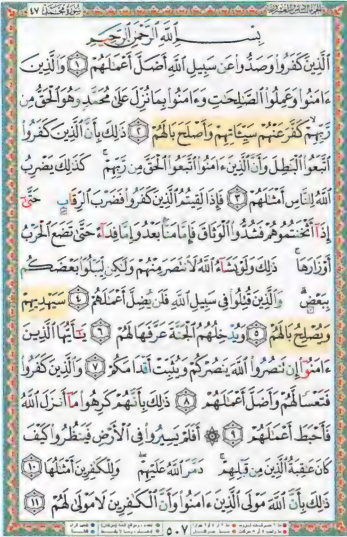 سورة محمد ٤٧
بِسْمِ ٱللَّهِ ٱلرَّحْمَٰنِ ٱلرَّحِيمِ
ٱلَّذِينَ كَفَرُوا۟ وَصَدُّوا۟ عَن سَبِيلِ ٱللَّهِ أَضَلَّ أَعْمَٰلَهُمْ ١ وَٱلَّذِينَ
ءَامَنُوا۟ وَعَمِلُوا۟ ٱلصَّٰلِحَٰتِ وَءَامَنُوا۟ بِمَا نُزِّلَ عَلَىٰ مُحَمَّدٍ وَهُوَ ٱلْحَقُّ مِن
رَّبِّهِمْ كَفَّرَ عَنْهُمْ سَيِّـَٔاتِهِمْ وَأَصْلَحَ بَالَهُمْ ٢ ذَٰلِكَ بِأَنَّ ٱلَّذِينَ كَفَرُوا۟
ٱتَّبَعُوا۟ ٱلْبَٰطِلَ وَأَنَّ ٱلَّذِينَ ءَامَنُوا۟ ٱتَّبَعُوا۟ ٱلْحَقَّ مِن رَّبِّهِمْ كَذَٰلِكَ يَضْرِبُ
ٱللَّهُ لِلنَّاسِ أَمْثَٰلَهُمْ ٣ فَإِذَا لَقِيتُمُ ٱلَّذِينَ كَفَرُوا۟ فَضَرْبَ ٱلرِّقَابِ حَتَّىٰٓ
إِذَآ أَثْخَنتُمُوهُمْ فَشُدُّوا۟ ٱلْوَثَاقَ فَإِمَّا مَنًّۢا بَعْدُ وَإِمَّا فِدَآءً حَتَّىٰ تَضَعَ ٱلْحَرْبُ
أَوْزَارَهَا ذَٰلِكَ وَلَوْ يَشَآءُ ٱللَّهُ لَٱنتَصَرَ مِنْهُمْ وَلَٰكِن لِّيَبْلُوَا۟ بَعْضَكُم
بِبَعْضٍ وَٱلَّذِينَ قُتِلُوا۟ فِى سَبِيلِ ٱللَّهِ فَلَن يُضِلَّ أَعْمَٰلَهُمْ ٤ سَيَهْدِيهِمْ
وَيُصْلِحُ بَالَهُمْ ٥ وَيُدْخِلُهُمُ ٱلْجَنَّةَ عَرَّفَهَا لَهُمْ ٦ يَٰٓأَيُّهَا ٱلَّذِينَ
ءَامَنُوٓا۟ إِن تَنصُرُوا۟ ٱللَّهَ يَنصُرْكُمْ وَيُثَبِّتْ أَقْدَامَكُمْ ٧ وَٱلَّذِينَ كَفَرُوا۟
فَتَعْسًا لَّهُمْ وَأَضَلَّ أَعْمَٰلَهُمْ ٨ ذَٰلِكَ بِأَنَّهُمْ كَرِهُوا۟ مَآ أَنزَلَ ٱللَّهُ
فَأَحْبَطَ أَعْمَٰلَهُمْ ٩ ۞ أَفَلَمْ يَسِيرُوا۟ فِى ٱلْأَرْضِ فَيَنظُرُوا۟ كَيْفَ
كَانَ عَٰقِبَةُ ٱلَّذِينَ مِن قَبْلِهِمْ دَمَّرَ ٱللَّهُ عَلَيْهِمْ وَلِلْكَٰفِرِينَ أَمْثَٰلُهَا ١٠
ذَٰلِكَ بِأَنَّ ٱللَّهَ مَوْلَى ٱلَّذِينَ ءَامَنُوا۟ وَأَنَّ ٱلْكَٰفِرِينَ لَا مَوْلَىٰ لَهُمْ ١١
٥٠٧